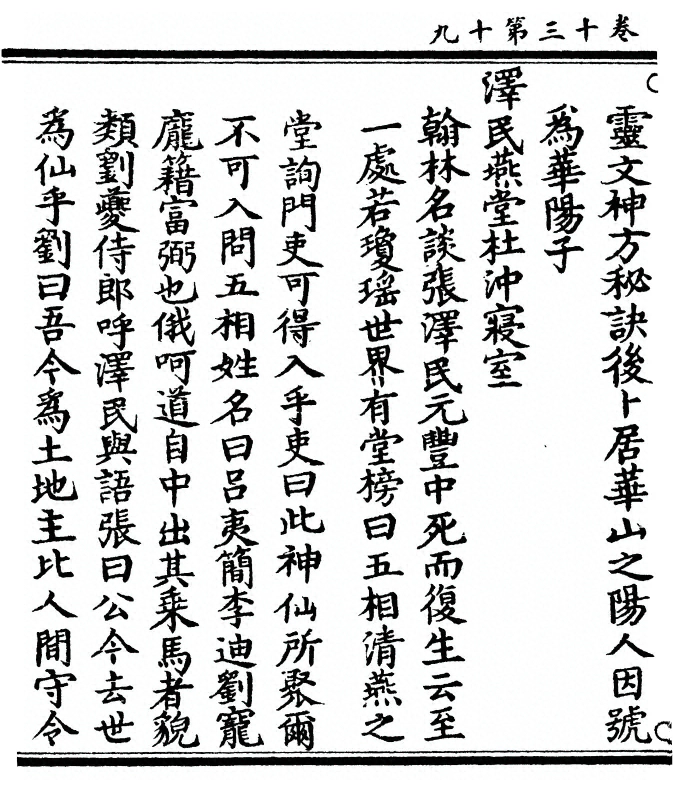 卷十三第十九
靈文神方秘訣後卜居華山之陽人因號
為華陽子
澤民燕堂杜沖寢室
翰林名談張澤民元豐中死而復生云至
一處若瓊瑶世界有堂榜曰五相清燕之
堂詢門吏可得入乎吏曰此神仙所聚爾
不可入問五相姓名曰呂夷簡李迪劉寵
龐籍富弼也俄呵道自中出其乘馬者貌
類劉夔侍郎呼澤民與語張曰公今去世
為仙乎劉曰吾今為土地主比人間守令